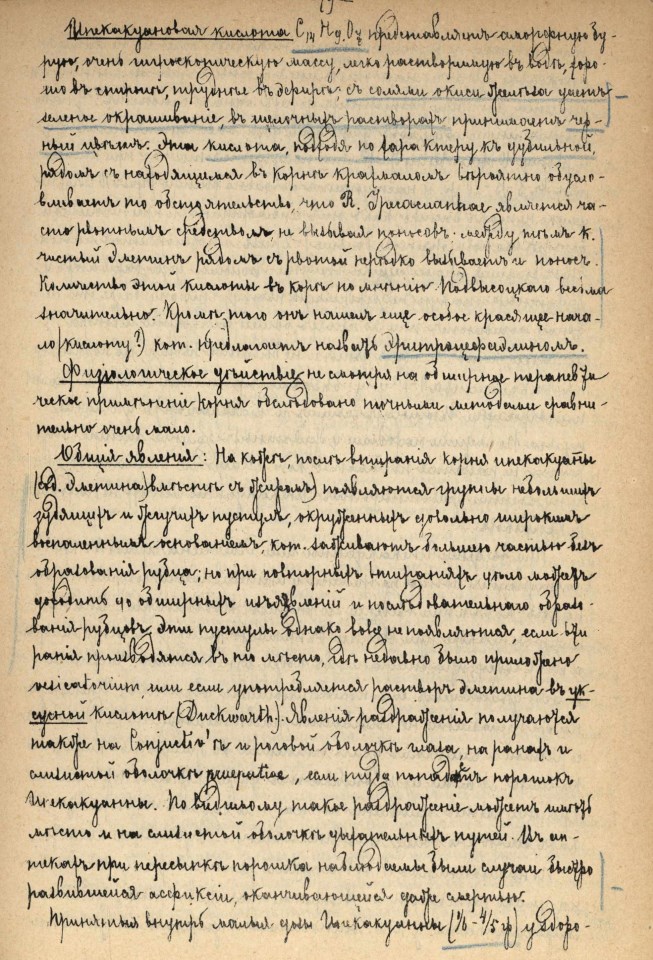 Ипекакуановая кислота C14 H9 O7 представляетъ аморфную бу-
рую, очень гигроскопическую массу, легко растворимую въ водѣ, хоро-
шо въ спиртѣ, труднѣе въ эфирѣ; съ солями окиси желѣза даетъ
зеленое окрашиваніе, въ щелочныхъ растворахъ принимаетъ чер-
ный цвѣтъ. Эта кислота, подходя по характеру къ дубильной,
рядомъ съ находящемся въ корнѣ крахмаломъ вѣроятно обусло-
вливаетъ то обстоятельство, что R. Ipecacuanhae является ча-
сто рвотнымъ средствомъ, не вызывая поносовъ. между тѣмъ к.
чистый Эметинъ рядомъ съ рвотой нерѣдко вызываетъ и поносъ.
Количество этой кислоты въ корнѣ по мнѣнію Подвысоцкаго весьма
значительно. Кромѣ того онъ нашелъ еще особое красящее нача-
ло (кислоту?) кот. предлагаетъ назвать Эритроцефалиномъ.
Физіологическое дѣйствіе не смотря на обширное терапевти-
ческое примѣненіе корня обслѣдовано точными методами сравни-
тельно очень мало.
Общія явленія: На кожѣ, послѣ втиранія корня ипекакуаны
(Эметина) вмѣстѣ съ жиромъ) появляются группы небольшихъ
зудящихъ и жгучихъ пустулъ, окруженныхъ довольно широкимъ
воспаленнымъ основаніемъ, кот. заживаютъ большею частью безъ
образованія рубца; но при повторныхъ втираніяхъ дѣло можетъ
доходить до обширныхъ изъязвленій и послѣдовательнаго образо-
ванія рубцовъ. Эти пустулы однако вовсе не появляются, если вти-
ранія производятся въ то мѣсто, гдѣ недавно было приложено
vesicatorium или если употребляется растворъ эметина въ ук-
сусной кислотѣ (Duckwarth). Явленія раздраженія получаются
также на Conjuctiv'ѣ и роговой оболочкѣ глаза, на ранахъ и
слизистой оболочкѣ, если туда попадетъ порошокъ
Ипекакуанны. По видимому такое раздраженіе можетъ имѣть
мѣсто и на слизистой оболочкѣ дыхательныхъ путей. Въ ап-
текахъ при пересыпкѣ порошка наблюдаемы были случаи быстро
развившейся асфиксіи, оканчивающейся даже смертью.
Принятыя внутрь малыя дозы Ипекакуанны у здоро-